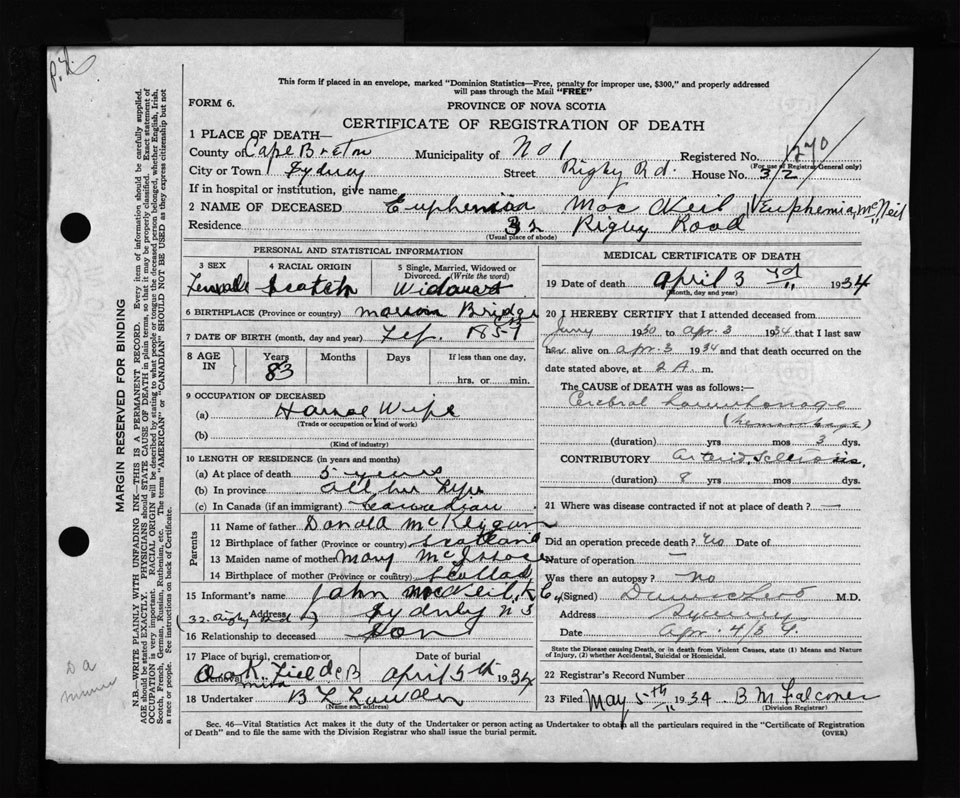 This form if placed in an envelope, marked "Dominion Statistics—Free, penalty for improper use, $300," and properly addressed
will pass through the Mail "FREE"
FORM 6.
PROVINCE OF NOVA SCOTIA
CERTIFICATE OF REGISTRATION OF DEATH
1 PLACE OF DEATH—
County of Cape Breton Municipality of No 1 Registered No. 1270
(For use of Registrar General only)
City or Town Sydney Street Rigby Rd. House No. 32
If in hospital or institution, give name
2 NAME OF DECEASED Euphemia Mac Neil "Euphemia McNeil"
Residence 32 Rigby Road
(Usual place of abode)
PERSONAL AND STATISTICAL INFORMATION
3 SEX 4 RACIAL ORIGIN 5 Single, Married, Widowed or
Divorced. (Write the word)
Female Scotch
6 BIRTHPLACE (Province or country) Marion Bridge
7 DATE OF BIRTH (month, day and year)
8 AGE IN Years Months Days If less than one day,
83 hrs. or min.
9 OCCUPATION OF DECEASED
(a) House Wife
(Trade or occupation or kind of work)
(b)
(Kind of industry)
10 LENGTH OF RESIDENCE (in years and months)
(a) At place of death 5 years
(b) In province all her life
(c) In Canada (if an immigrant) Canadian
Parents
11 Name of father Donald
12 Birthplace of father (Province or country) Scotland
13 Maiden name of mother Mary
14 Birthplace of mother (Province or country)
15 Informant's name John MacNeil, K C
Address Sydney N S
(32 Rigby Rd)
16 Relationship to deceased Son
17 Place of burial, cremation or removal Date of burial
April 5th 1934
18 Undertaker
(Name and address)
MEDICAL CERTIFICATE OF DEATH
19 Date of death April 3rd 1934
(Month, day and year)
20 I HEREBY CERTIFY that I attended deceased from
1930 to Apr. 3 1934 that I last saw
her alive on Apr 3 1934 and that death occurred on the
date stated above, at 2 A. m.
The CAUSE of DEATH was as follows:—
Cerebral
(hemorrhage)
(duration) yrs mos 3 dys.
CONTRIBUTORY
(duration) 8 yrs mos dys.
21 Where was disease contracted if not at place of death? —
Did an operation precede death? no Date of
Nature of operation —
Was there an autopsy? no
(Signed) M.D.
Address Sydney
Date Apr. 4/34.
State the Disease causing Death, or in death from Violent Causes, state (1) Means and
Nature of Injury, (2) whether Accidental, Suicidal or Homicidal.
22 Registrar's Record Number
23 Filed May 5th 1934 B M Falconer
(Division Registrar)
Sec. 46—Vital Statistics Act makes it the duty of the Undertaker or person acting as Undertaker to obtain all the particulars required in the "Certificate of Registration
of Death" and to file the same with the Division Registrar who shall issue the burial permit.
(OVER)
MARGIN RESERVED FOR BINDING
N.B.—WRITE PLAINLY WITH UNFADING INK—THIS IS A PERMANENT RECORD. Every item of information should be carefully supplied.
AGE should be stated EXACTLY. PHYSICIANS should STATE CAUSE OF DEATH in plain terms, so that it may be properly classified. Exact statement of
OCCUPATION is very important. RACIAL ORIGIN will be described by stating to what people or tongue the deceased person belonged, whether English, Irish,
Scotch, French, German, Russian, Ruthenian, etc. The terms "AMERICAN" or "CANADIAN" SHOULD NOT BE USED as they express citizenship but not
a race or people. See instructions on back of Certificate.